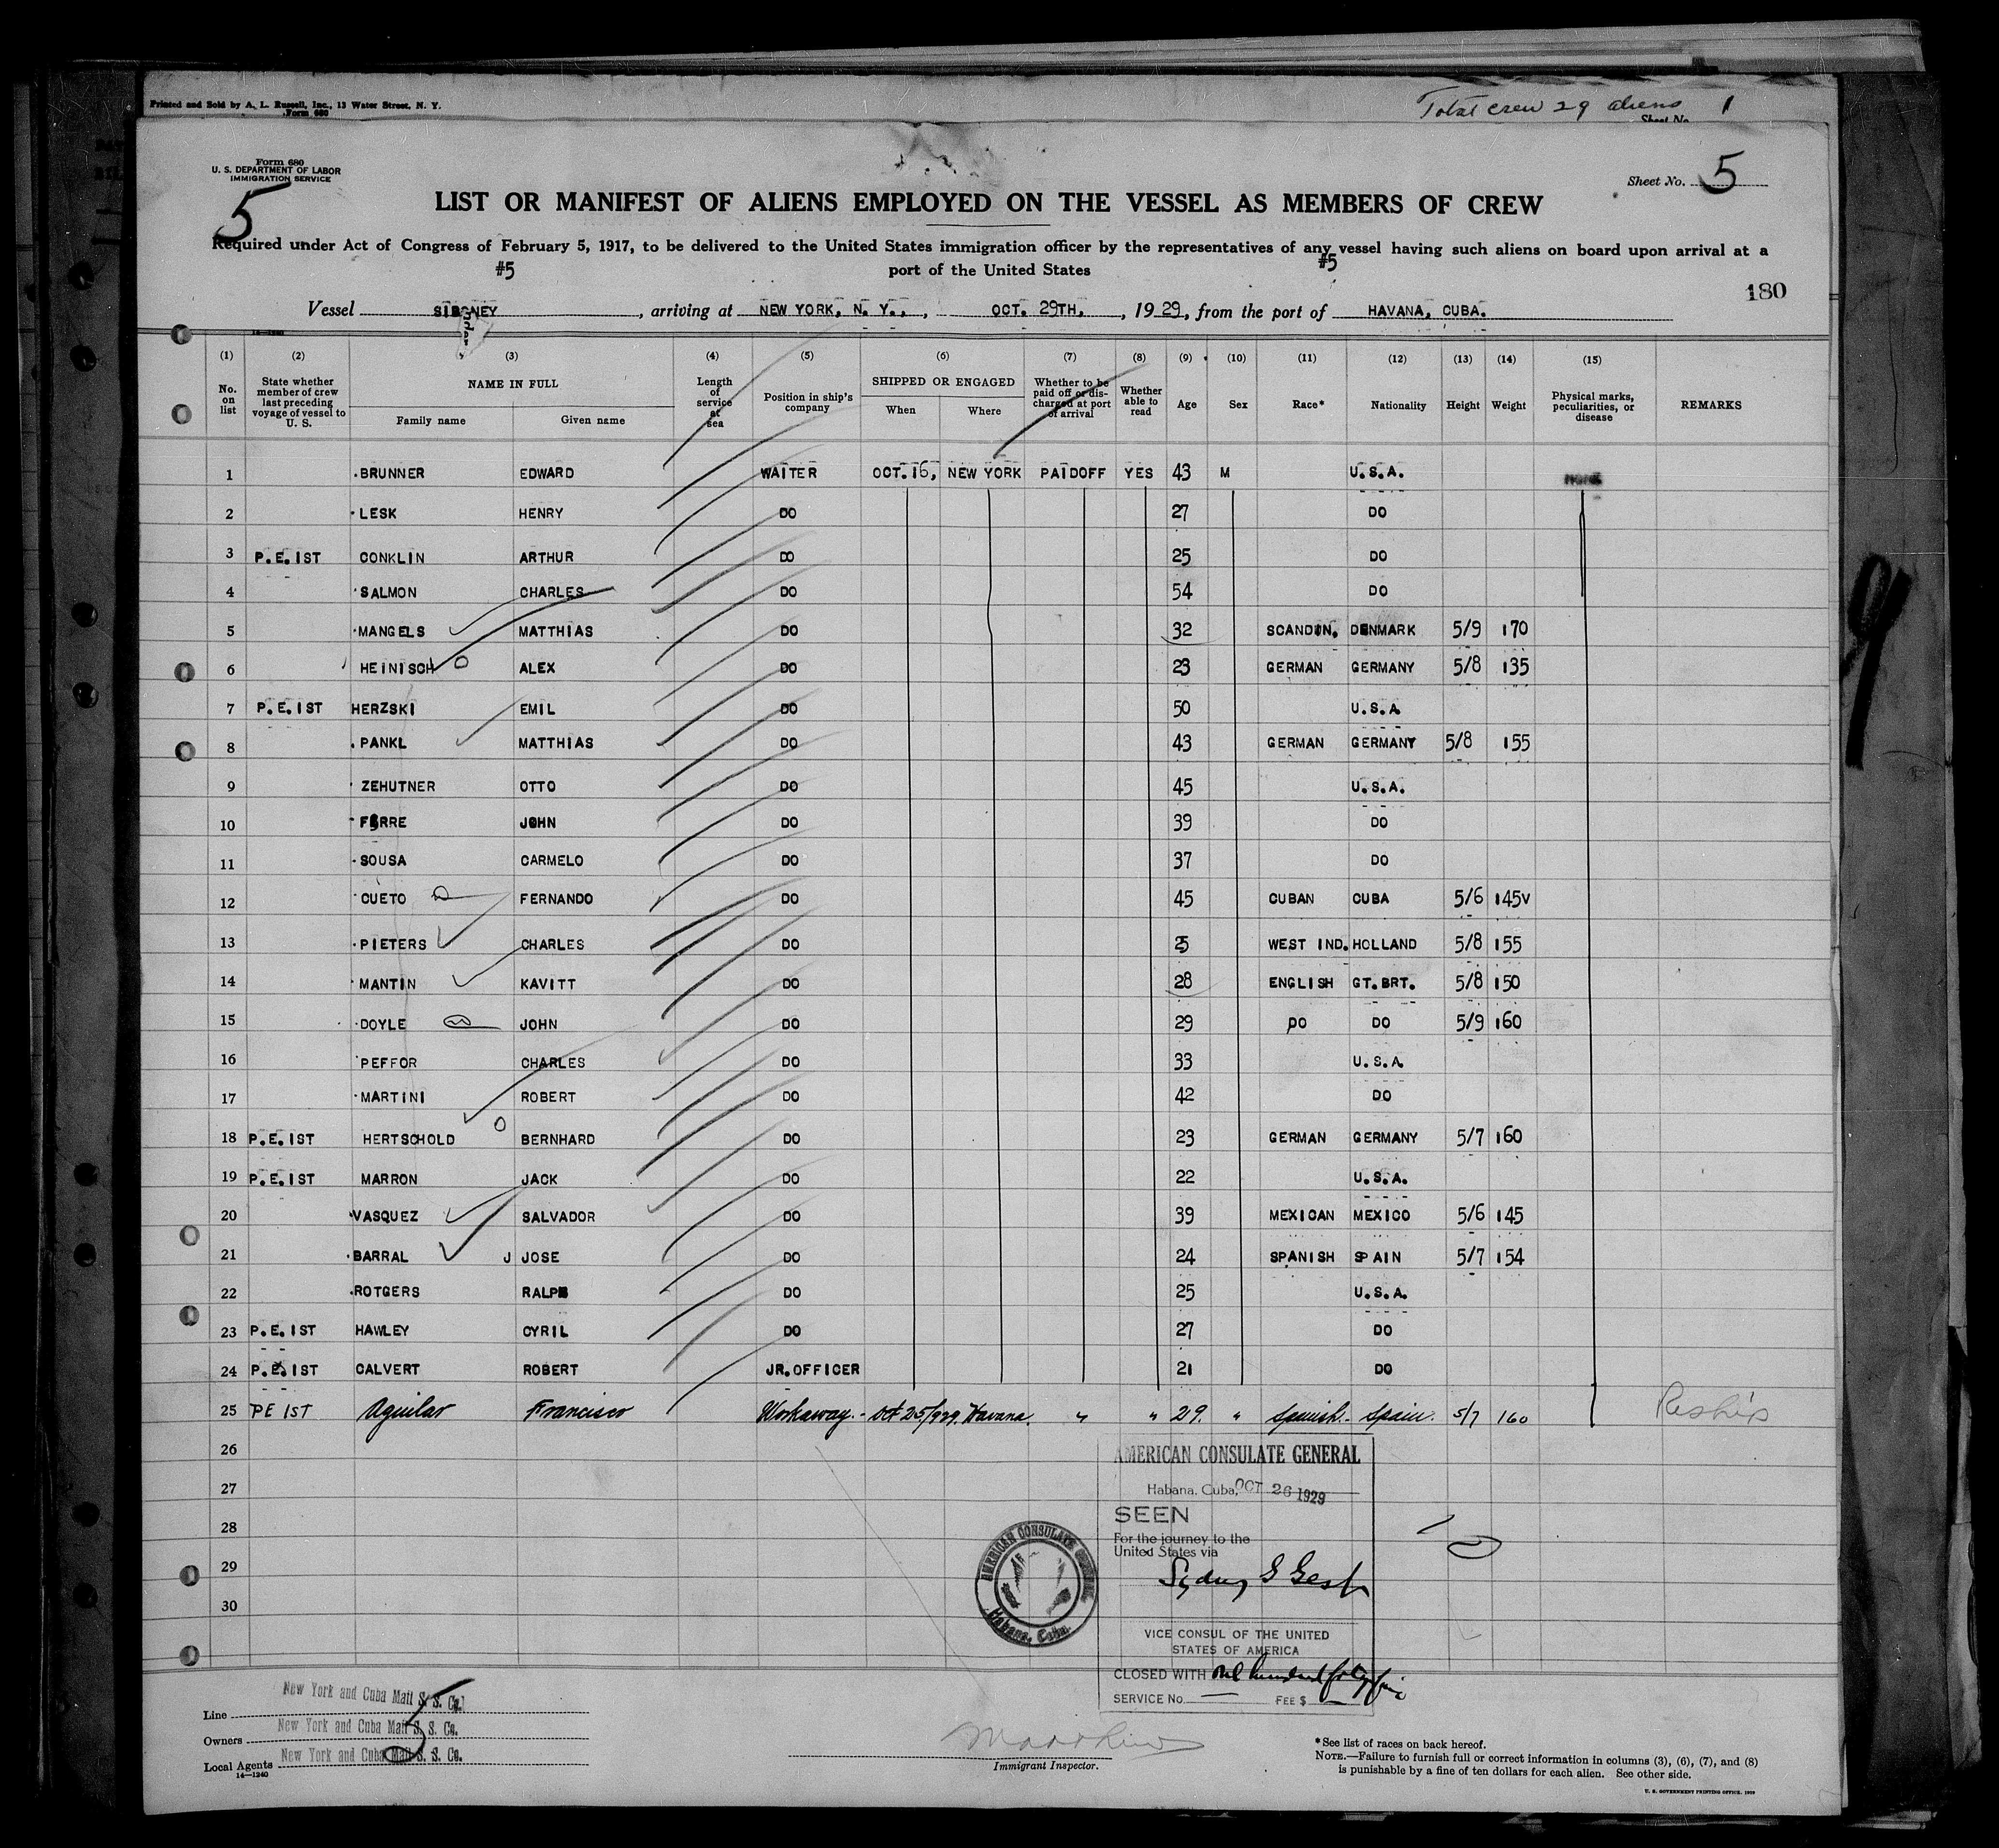 Printed and Sold by A. L. Russell, Inc., 13 Water Street, N. Y.
Form 680
Total crew 29 aliens 1
Sheet No.
Form 680
U. S. DEPARTMENT OF LABOR
IMMIGRATION SERVICE
5
Sheet No. 5
LIST OR MANIFEST OF ALIENS EMPLOYED ON THE VESSEL AS MEMBERS OF CREW
Required under Act of Congress of February 5, 1917, to be delivered to the United States immigration officer by the representatives of any vessel having such aliens on board upon arrival at a
port of the United States
#5 #5
180
Vessel SIBONEY, arriving at NEW YORK, N. Y., OCT. 29TH, 1929, from the port of HAVANA, CUBA.
14-1240
(1) (2) (3) (4) (5) (6) (7) (8) (9) (10) (11) (12) (13) (14) (15)
No. on list State whether member of crew last preceding voyage of vessel to U. S. NAME IN FULL Family name Given name Length of service at sea Position in ship's company SHIPPED OR ENGAGED When Where Whether to be paid off or discharged at port of arrival Whether able to read Age Sex Race* Nationality Height Weight Physical marks, peculiarities, or disease REMARKS
1 BRUNNER EDWARD WAITER OCT.16, NEW YORK PAIDOFF YES 43 M U.S.A. NONE
2 LESK HENRY DO 27 DO
3 P.E.IST CONKLIN ARTHUR DO 25 DO
4 SALMON CHARLES DO 54 DO
5 MANGELS MATTHIAS DO 32 SCANDIN. DENMARK 5/9 170
6 HEINISCH ALEX DO 23 GERMAN GERMANY 5/8 135
7 P.E.IST HERZSKI EMIL DO 50 U.S.A.
8 PANKL MATTHIAS DO 43 GERMAN GERMANY 5/8 155
9 ZEHUTNER OTTO DO 45 U.S.A.
10 JOHN DO 39 DO
11 SOUSA CARMELO DO 37 DO
12 CUETO FERNANDO DO 45 CUBAN CUBA 5/6 145
13 PIETERS CHARLES DO 25 WEST IND. HOLLAND 5/8 155
14 MANTIN KAVITT DO 28 ENGLISH GT.BRT. 5/8 150
15 DOYLE JOHN DO 29 DO DO 5/9 160
16 PEFFOR CHARLES DO 33 U.S.A.
17 MARTINI ROBERT DO 42 DO
18 P.E.IST HERTSCHOLD BERNHARD DO 23 GERMAN GERMANY 5/7 160
19 P.E.IST MARRON JACK DO 22 U.S.A.
20 VASQUEZ SALVADOR DO 39 MEXICAN MEXICO 5/6 145
21 BARRAL J JOSE DO 24 SPANISH SPAIN 5/7 154
22 ROTGERS RALPH DO 25 U.S.A.
23 P.E.IST HAWLEY CYRIL DO 27 DO
24 P.E.IST CALVERT ROBERT JR.OFFICER 21 DO
25 PE IST Aguilar Francisco Workaway.- Oct 25/929 Havana. " " 29. " Spanish.- Spain. 5/7 160 Reship
26
27
28
29
30
AMERICAN CONSULATE GENERAL
Habana, Cuba, OCT 26 1929
SEEN
For the journey to the
United States via
VICE CONSUL OF THE UNITED
STATES OF AMERICA
CLOSED WITH one hundred
SERVICE No. FEE $
AMERICAN CONSULATE GENERAL
Habana, Cuba.
Line New York and Cuba Mail S. S. Co.
Owners New York and Cuba Mail S. S. Co.
Local Agents New York and Cuba Mail S. S. Co.
5
14-1240
Immigrant Inspector.
*See list of races on back hereof.
NOTE.—Failure to furnish full or correct information in columns (3), (6), (7), and (8)
is punishable by a fine of ten dollars for each alien. See other side.
U. S. GOVERNMENT PRINTING OFFICE. 1929